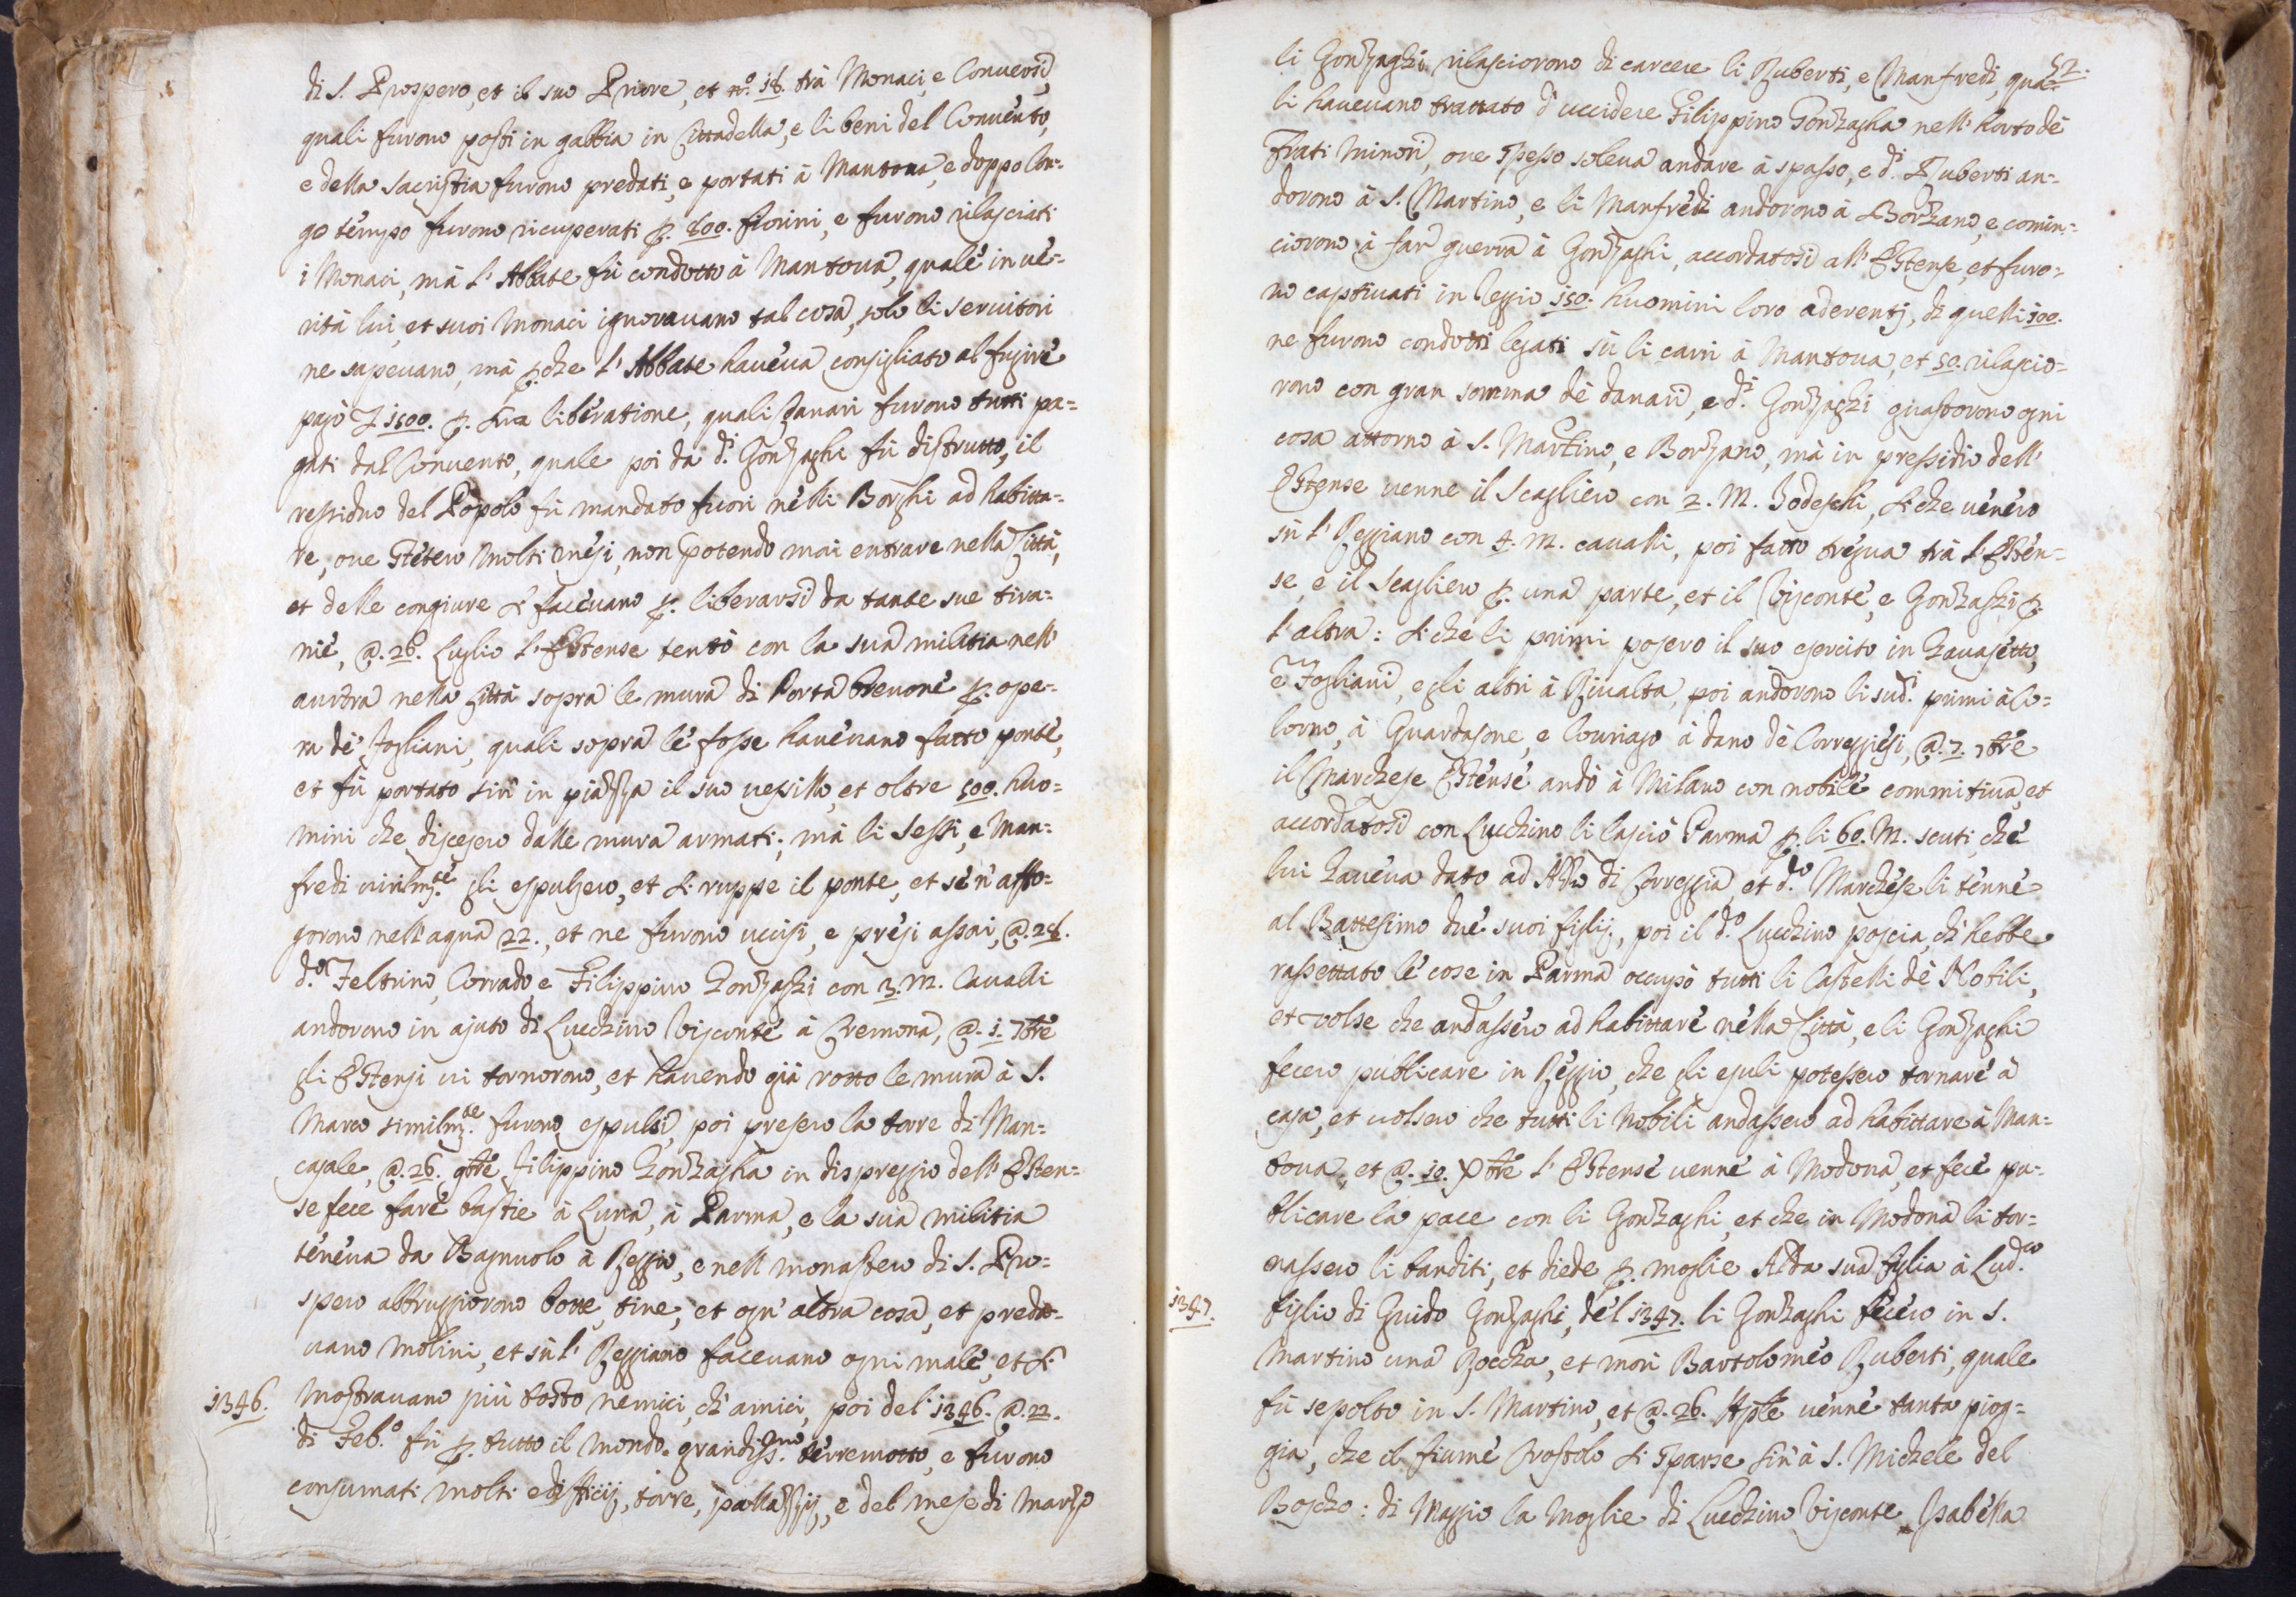 di S. Prospero, et il suo Priore, et n.º 18. trà Monaci, e Conversi,
quali furono posti in gabbia in Cittadella, e li beni del Convento,
e della sacristia furono predati, e portati à Mantova, e doppo lon=
go tempo furono ricuperati p. 800. fiorini, e furono rilasciati
i Monaci, mà l'Abbate fù condotto à Mantova, quale in ve=
rità lui, et suoi Monaci ignoravano tal cosa, solo li servitori
ne sapevano, mà p.che l'Abbate haveva consigliato al fugire
pagò 1500. p. sua liberatione, quali danari furono tutti pa=
gati dal Convento, quale poi da d.i Gonzaghi fù distrutto, il
ressiduo del Popolo fù mandato fuori nelli Borghi ad habitta=
re, ove stetero molti mesi, non potendo mai entrare nella Città,
et delle congiure si facevano p. liberarsi da tante sue tira=
nie, @. 26. Luglio l'Estense tentò con la sua militia nell'
aurora nella Città sopra le mura di Porta brenone p. ope=
ra de' Fogliani, quali sopra le fosse havevano fatto ponte,
et fù portato sin in piazza il suo vessillo, et oltre 500. huo=
mini che discesero dalle mura armati; mà li Sessi, e Man=
fredi virilm.te gli espulsero, et si ruppe il ponte, et se n'affo=
gorono nell'aqua 22., et ne furono uccisi, e presi assai, @. 28.
d.º Feltrino, Corrado, e Filippino Gonzaghi con 3. M. Cavalli
andorono in ajuto di Lucchino Visconte à Cremona, @. 1. 7bre
gli Estensi vi tornorono, et havendo già rotto le mura à S.
Marco similm.te furono espulsi, poi presero la torre di Man=
casale, @. 26. 9bre Filippino Gonzagha in dispreggio dell'Esten=
se fece fare bastie à Luna, à Parma, e la sua militia
teneva da Bagnuolo à Reggio, e nell monastero di S. Pro=
spero abbruggiorono botte, tine, et ogn'altra cosa, et preda=
vano molini, et sù l'Reggiano facevano ogni male, et si
1346. mostravano più tosto nemici, ch'amici, poi del 1346. @. 22.
di Feb.º fù p. tutto il mondo grandiss.mo terremotto, e furono
consumati molti edifficij, torre, pallazzij, e del mese di Marzo
52.
li Gonzaghi rilasciorono di carcere li Ruberti, e Manfredi, qua=
li havevano trattato d'uccidere Filippino Gonzagha nell'horto de
Frati Minori, ove spesso soleva andare à spasso, e d.i Ruberti an=
dorono à S. Martino, e li Manfredi andorono à Borzano, e comin=
ciorono à far guerra à Gonzaghi, accordatosi all'Estense, et furo=
no captivati in Reggio 150. huomini loro aderentj, di quelli 100.
ne furono condotti legati sù li carri à Mantova, et 50. rilascio=
rono con gran somma de danari, e d.i Gonzaghi guastorono ogni
cosa attorno à S. Martino, e Borzano, mà in pressidio dell'
Estense venne il Scagliero con 2. M. Todeschi, si che venero
sù l'Reggiano con 4. M. cavalli, poi fatto tregua trà l'Esten=
se, e il Scagliero p. una parte, et il Visconte, e Gonzaghi p.
l'altra: si che li primi posero il suo esercito in Gavasetto,
e Fogliani, e gli altri à Rivalta, poi andorono li sud.i primi à Co=
lorno, à Guardasone, e Couriago à dano de Correggiesi, @. 7. 7bre
il Marchese Estense andò à Milano con nobile commitiva, et
accordatosi con Lucchino li lasciò Parma p. li 60. M. scuti, che
lui haveva dato ad Azzo di Correggia, et d.º Marchese li tenne
al Battesimo due suoi figlij, poi il d.º Lucchino poscia, ch'hebbe
rassettato le cose in Parma occupò tutti li Castelli de Nobili,
et volse che andassero ad habittare nella Città, e li Gonzaghi
fecero publicare in Reggio, che gli esuli potessero tornare à
casa, et volsero che tutti li Nobili andassero ad habittare à Man=
tova, et @. 10. Xbre l'Estense venne à Modona, et fece pu=
blicare la pace con li Gonzaghi, et che in Modona li tor=
nassero li banditi, et diede p. moglie Alda sua figlia à Lud.co
1347. figlio di Guido Gonzaghi, del 1347. li Gonzaghi fecero in S.
Martino una Roccha, et morì Bartolomeo Ruberti, quale
fù sepolto in S. Martino, et @. 26. Aple venne tanta piog=
gia, che il fiume Crostolo si sparse sin'à S. Michele del
Boscho: di Maggio la Moglie di Lucchino Visconte Isabella